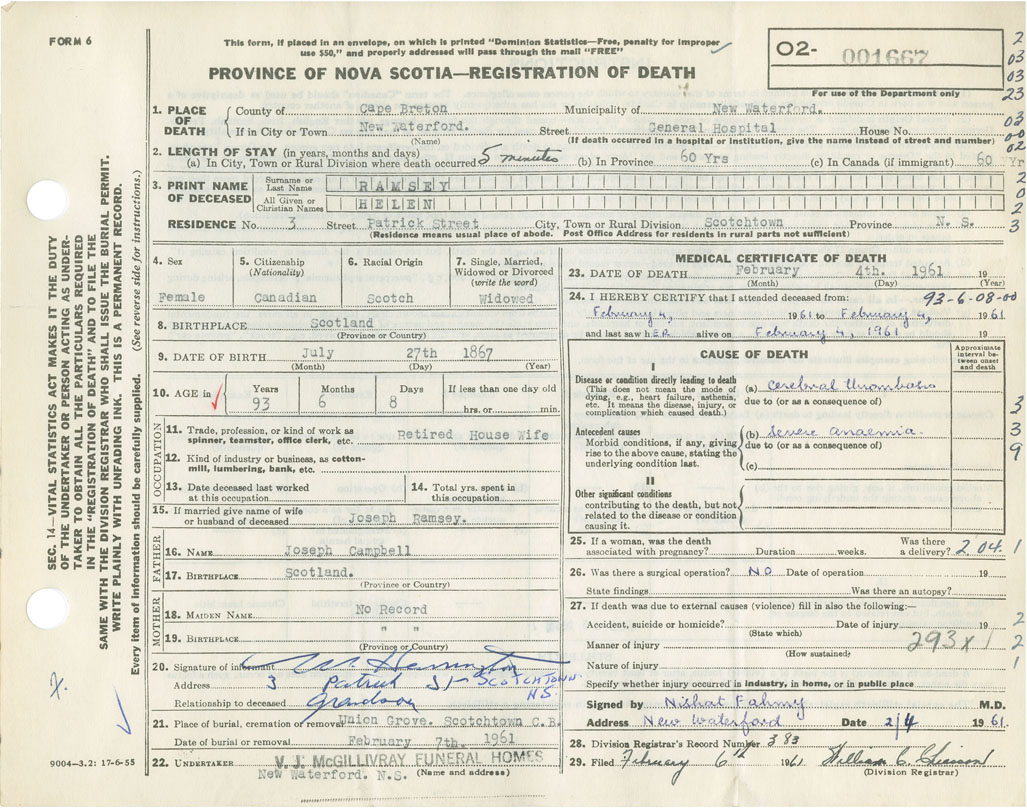 FORM 6
This form, if placed in an envelope, on which is printed "Dominion Statistics—Free, penalty for improper
use $50," and properly addressed will pass through the mail "FREE"
O2- 001667
For use of the Department only
PROVINCE OF NOVA SCOTIA—REGISTRATION OF DEATH
1. PLACE OF DEATH
County of Cape Breton Municipality of New Waterford.
If in City or Town New Waterford. Street General Hospital House No.
(Name) (If death occurred in a hospital or institution, give the name instead of street and number)
2. LENGTH OF STAY (in years, months and days)
(a) In City, Town or Rural Division where death occurred 5 minutes (b) In Province 60 Yrs (c) In Canada (if immigrant) 60 Yr
3. PRINT NAME OF DECEASED
Surname or Last Name RAMSEY
All Given or Christian Names HELEN
RESIDENCE No. 3 Street Patrick Street City, Town or Rural Division Scotchtown Province N. S.
(Residence means usual place of abode. Post Office Address for residents in rural parts not sufficient)
2
03
03
23
03
00
02
2
0
2
3
4. Sex
Female
5. Citizenship
(Nationality)
Canadian
6. Racial Origin
Scotch
7. Single, Married,
Widowed or Divorced
(write the word)
Widowed
8. BIRTHPLACE Scotland
(Province or Country)
9. DATE OF BIRTH July 27th 1867
(Month) (Day) (Year)
10. AGE in
Years Months Days If less than one day old
93 6 8 hrs. or min.
OCCUPATION
11. Trade, profession, or kind of work as
spinner, teamster, office clerk, etc. Retired House Wife
12. Kind of industry or business, as cotton-
mill, lumbering, bank, etc.
13. Date deceased last worked
at this occupation
14. Total yrs. spent in
this occupation
15. If married give name of wife
or husband of deceased Joseph Ramsey.
FATHER
16. NAME Joseph Campbell
17. BIRTHPLACE Scotland.
(Province or Country)
MOTHER
18. MAIDEN NAME No Record
19. BIRTHPLACE " "
(Province or Country)
20. Signature of informant
Address 3 Patrick St- SCOTCHTOWN
N.S.
Relationship to deceased Grandson
21. Place of burial, cremation or removal Union Grove. Scotchtown C.B.
Date of burial or removal February 7th. 1961
22. UNDERTAKER V. J. McGILLIVRAY FUNERAL HOMES
New Waterford. N.S. (Name and address)
MEDICAL CERTIFICATE OF DEATH
23. DATE OF DEATH February 4th. 1961 19
(Month) (Day) (Year)
24. I HEREBY CERTIFY that I attended deceased from: 93-6-08-00
February 4, 1961 to February 4, 1961
and last saw hER alive on February 4, 1961 19
CAUSE OF DEATH
Approximate
interval be-
tween onset
and death
I
Disease or condition directly leading to death
(This does not mean the mode of
dying, e.g., heart failure, asthenia,
etc. It means the disease, injury, or
complication which caused death.)
(a) Cerebral thrombosis
due to (or as a consequence of)
Antecedent causes
Morbid conditions, if any, giving
rise to the above cause, stating the
underlying condition last.
(b) Severe anaemia.
due to (or as a consequence of)
(c)
3
3
9
II
Other significant conditions
contributing to the death, but not
related to the disease or condition
causing it.
25. If a woman, was the death
associated with pregnancy? Duration weeks. Was there
a delivery? 2 04. 1
26. Was there a surgical operation? NO Date of operation 19
State findings Was there an autopsy?
27. If death was due to external causes (violence) fill in also the following:—
Accident, suicide or homicide? Date of injury 19
(State which)
Manner of injury 293x
(How sustained)
Nature of injury
Specify whether injury occurred in industry, in home, or in public place
1
2
2
1
Signed by Nishat Fahmy M.D.
Address New Waterford Date 2/4 1961.
28. Division Registrar's Record Number 383
29. Filed February 6th 1961 William C. Chiasson
(Division Registrar)
SEC. 14—VITAL STATISTICS ACT MAKES IT THE DUTY
OF THE UNDERTAKER OR PERSON ACTING AS UNDER-
TAKER TO OBTAIN ALL THE PARTICULARS REQUIRED
IN THE "REGISTRATION OF DEATH" AND TO FILE THE
SAME WITH THE DIVISION REGISTRAR WHO SHALL ISSUE THE BURIAL PERMIT.
WRITE PLAINLY WITH UNFADING INK. THIS IS A PERMANENT RECORD.
Every item of information should be carefully supplied. (See reverse side for instructions.)
9004—3.2: 17-6-55